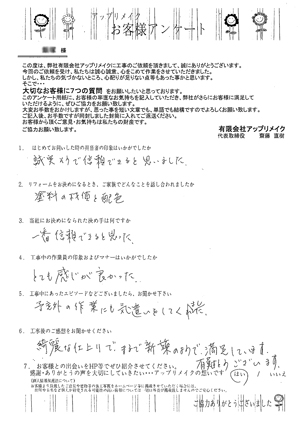 アップリメイク
お客様アンケート
様
この度は、弊社有限会社アップリメイクに工事のご依頼を頂きまして、誠にありがとうございます。
今回のご依頼を受け、私たちは誠心誠意、心をこめて作業をさせていただきました。
しかし、私たちの気づかないところ、心配りが至りない点等もあったかと思います。
そこで・・・
大切なお客様に7つの質問 をお願いしたいと思っております。
このアンケート用紙に、お客様の率直なお気持ちを記入していただき、弊社がさらにお客様に満足して
いただけるように、ぜひご協力をお願い致します。
大変お手数をおかけしますが、思った事を短い文章でも、単語でも結構ですのでよろしくお願い致します。
ご記入後、お手数ですが同封しました封筒に入れてご返送ください。
お客様から頂くご意見・お気持ちは私たちの財産です。
ご協力お願い致します。
有限会社アップリメイク
代表取締役 齋藤 直樹
1. はじめてお伺いした時の担当者の印象はいかがでしたか
誠実そうで信頼できると思いました。
2. リフォームをお決めになるとき、ご家族でどんなことを話し合われましたか
塗料の材価と配色
3. 当社にお決めになられた決め手は何ですか
一番信頼できると思った。
4. 工事中の作業員の印象およびマナーはいかがでしたか
とても感じが良かった。
5. 工事中にあったエピソードなどございましたら、お聞かせ下さい
予定外の作業にも
6. 工事後のご感想をお聞かせください
綺麗な仕上りで、まるで新築の様で満足しています。
有難うございます。
7. お客様との出会いをHP等でぜひ紹介させてください。
感謝・ありがとうの声を大切にしていきたい・・・アップリメイクの想いです
はい / いいえ
ご協力ありがとうございました